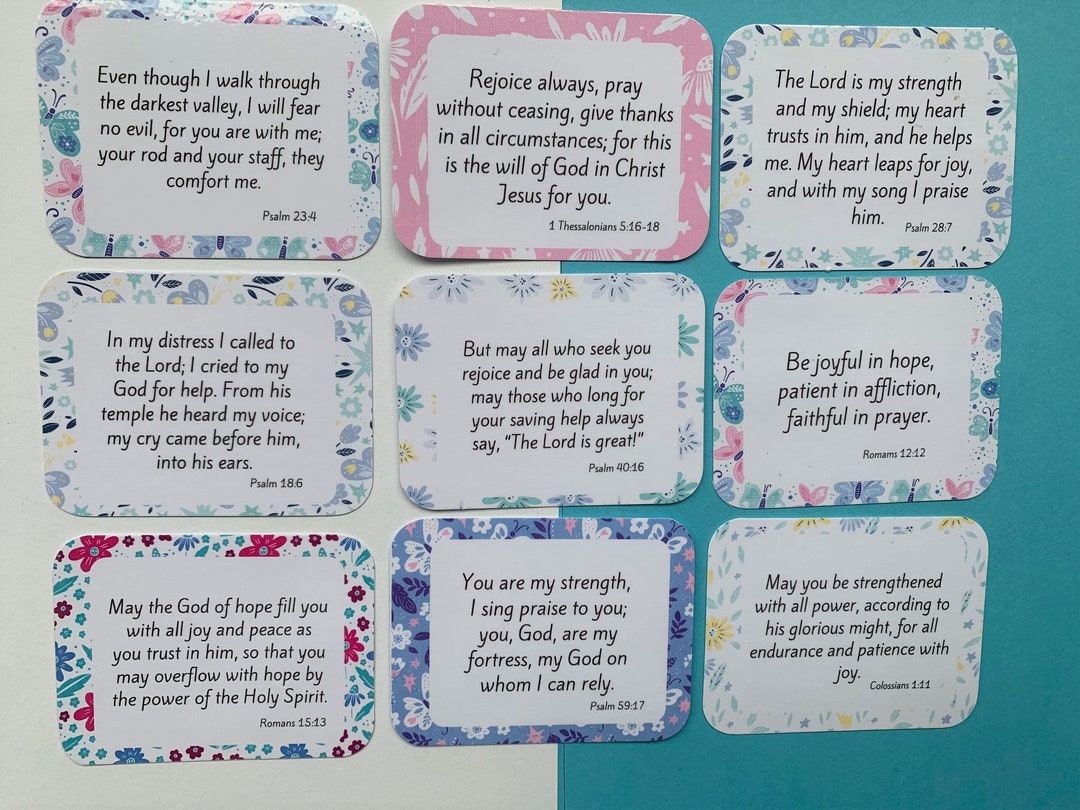 Even though I walk through
the darkest valley, I will fear
no evil, for you are with me;
your rod and your staff, they
comfort me.
Psalm 23:4
Rejoice always, pray
without ceasing, give thanks
in all circumstances; for this
is the will of God in Christ
Jesus for you.
1 Thessalonians 5:16-18
The Lord is my strength
and my shield; my heart
trusts in him, and he helps
me. My heart leaps for joy,
and with my song I praise
him.
Psalm 28:7
In my distress I called to
the Lord; I cried to my
God for help. From his
temple he heard my voice;
my cry came before him,
into his ears.
Psalm 18:6
But may all who seek you
rejoice and be glad in you;
may those who long for
your saving help always
say, “The Lord is great!”
Psalm 40:16
Be joyful in hope,
patient in affliction,
faithful in prayer.
Romans 12:12
May the God of hope fill you
with all joy and peace as
you trust in him, so that you
may overflow with hope by
the power of the Holy Spirit.
Romans 15:13
You are my strength,
I sing praise to you;
you, God, are my
fortress, my God on
whom I can rely.
Psalm 59:17
May you be strengthened
with all power, according to
his glorious might, for all
endurance and patience with
joy.
Colossians 1:11